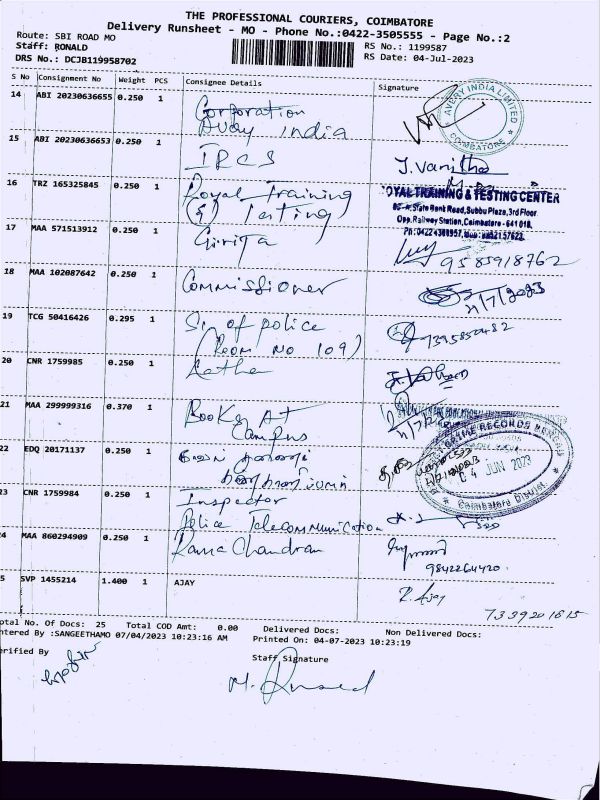 THE PROFESSIONAL COURIERS, COIMBATORE
Delivery Runsheet - MO - Phone No.:0422-3505555 - Page No.:2
Route: SBI ROAD MO
RS No.: 1199587
Staff: RONALD
RS Date: 04-Jul-2023
DRS No.: DCJB119958702
S No Consignment No Weight PCS Consignee Details Signature
14 ABI 20230636655 0.250 1 Corporation
Avay India
AVERY INDIA LIMITED
COIMBATORE
15 ABI 20230636653 0.250 1 IRCS
J. Vanitha
16 TRZ 165325845 0.250 1 Royal Training
(&) Testing
ROYAL TRAINING & TESTING CENTER
State Bank Road, Subbu Plaza, 3rd Floor
Opp. Railway Station, Coimbatore - 641 018.
17 MAA 571513912 0.250 1 Girija
9585918762
18 MAA 102087642 0.250 1 Commissioner
4/7/2023
19 TCG 50416426 0.295 1 S. of police
(Room No 109)
20 CNR 1759985 0.250 1
21 MAA 299999316 0.370 1 Books At
Campus
CRIME RECORDS BUREAU
22 EDQ 20171137 0.250 1
4 JUN 2023
Coimbatore District
23 CNR 1759984 0.250 1 Inspector
Police Telecommunication
24 MAA 860294909 0.250 1 Rama Chandran
9842264420
25 SVP 1455214 1.400 1 AJAY
R. Ajay
7339201615
Total No. Of Docs: 25 Total COD Amt: 0.00 Delivered Docs: Non Delivered Docs:
Entered By :SANGEETHAMO 07/04/2023 10:23:16 AM Printed On: 04-07-2023 10:23:19
Verified By
Staff Signature